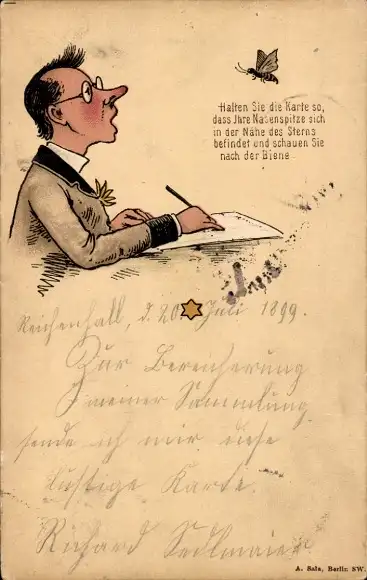 Halten Sie die Karte so,
dass Jhre Nasenspitze sich
in der Nähe des Sterns
befindet und schauen Sie
nach der Biene
Reichenhall, d. 20. Juli 1899.
Zur Bereicherung
meiner Sammlung
sende ich mir diese
lustige Karte.
Richard Sedlmaier
A. Sala, Berlin NW.